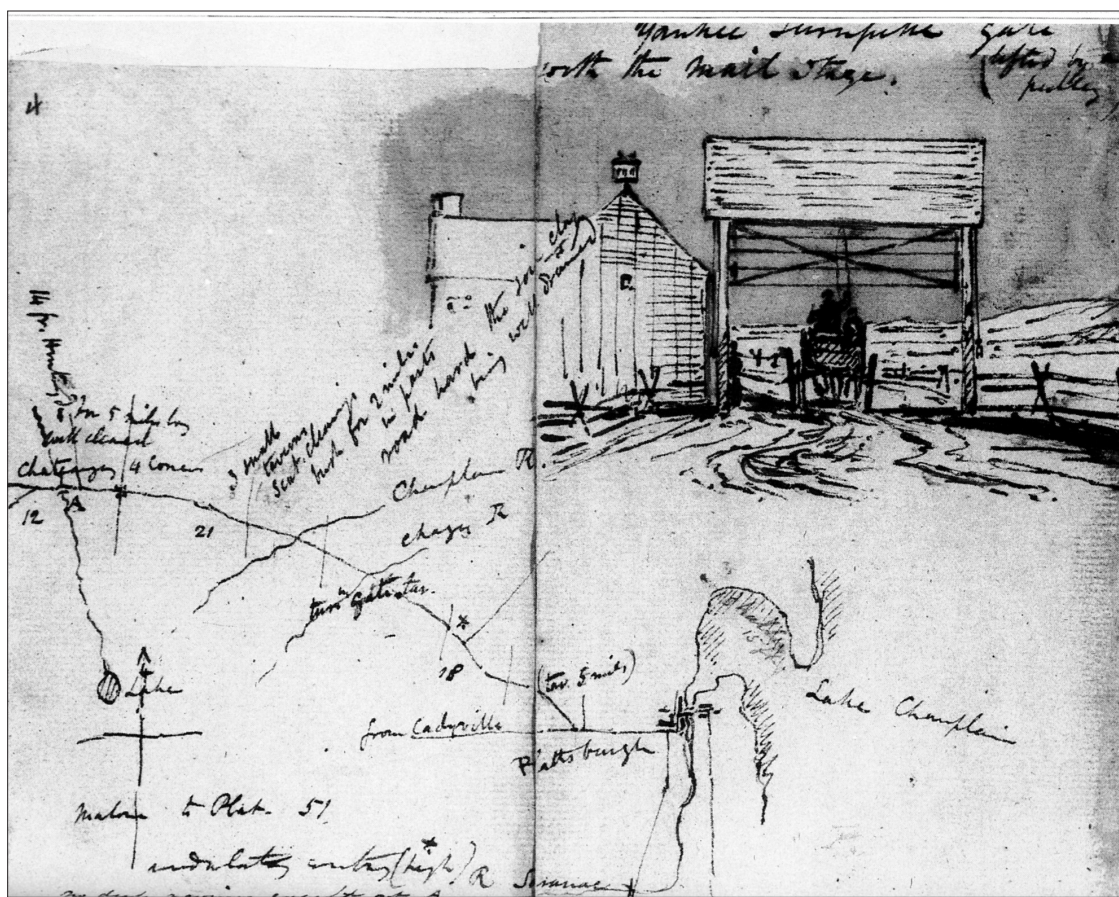 Yankee Turnpike gate
with the mail stage.
(lifted by a
pulley
4
14 fr
for 5 miles
Chateaugay 4 Corners
12
A
21
3 small
taverns
scat. clearings
bush for 2 miles
in parts
road hard
the soil clay
being well drained
Champlain R.
Chazy R
turn gate & tav.
*
18
(tav. 5 miles)
from Cadyville
Plattsburgh
Lake Champlain
Lake
Malone to Plat. 51
*
undulating country (high)
R Saranac